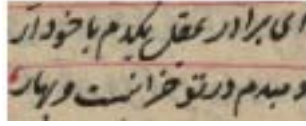 ای برادر عقل یکدم با خود آر
دمبدم در تو خزانست و بهار